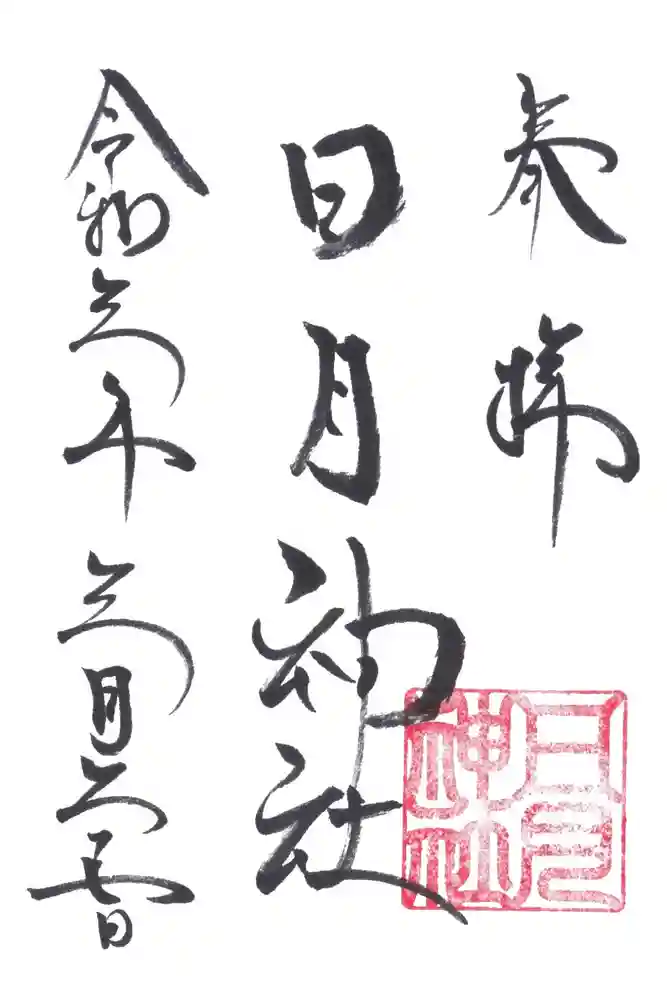 奉拝
日月神社
令和三年三月二十七日
日月神社